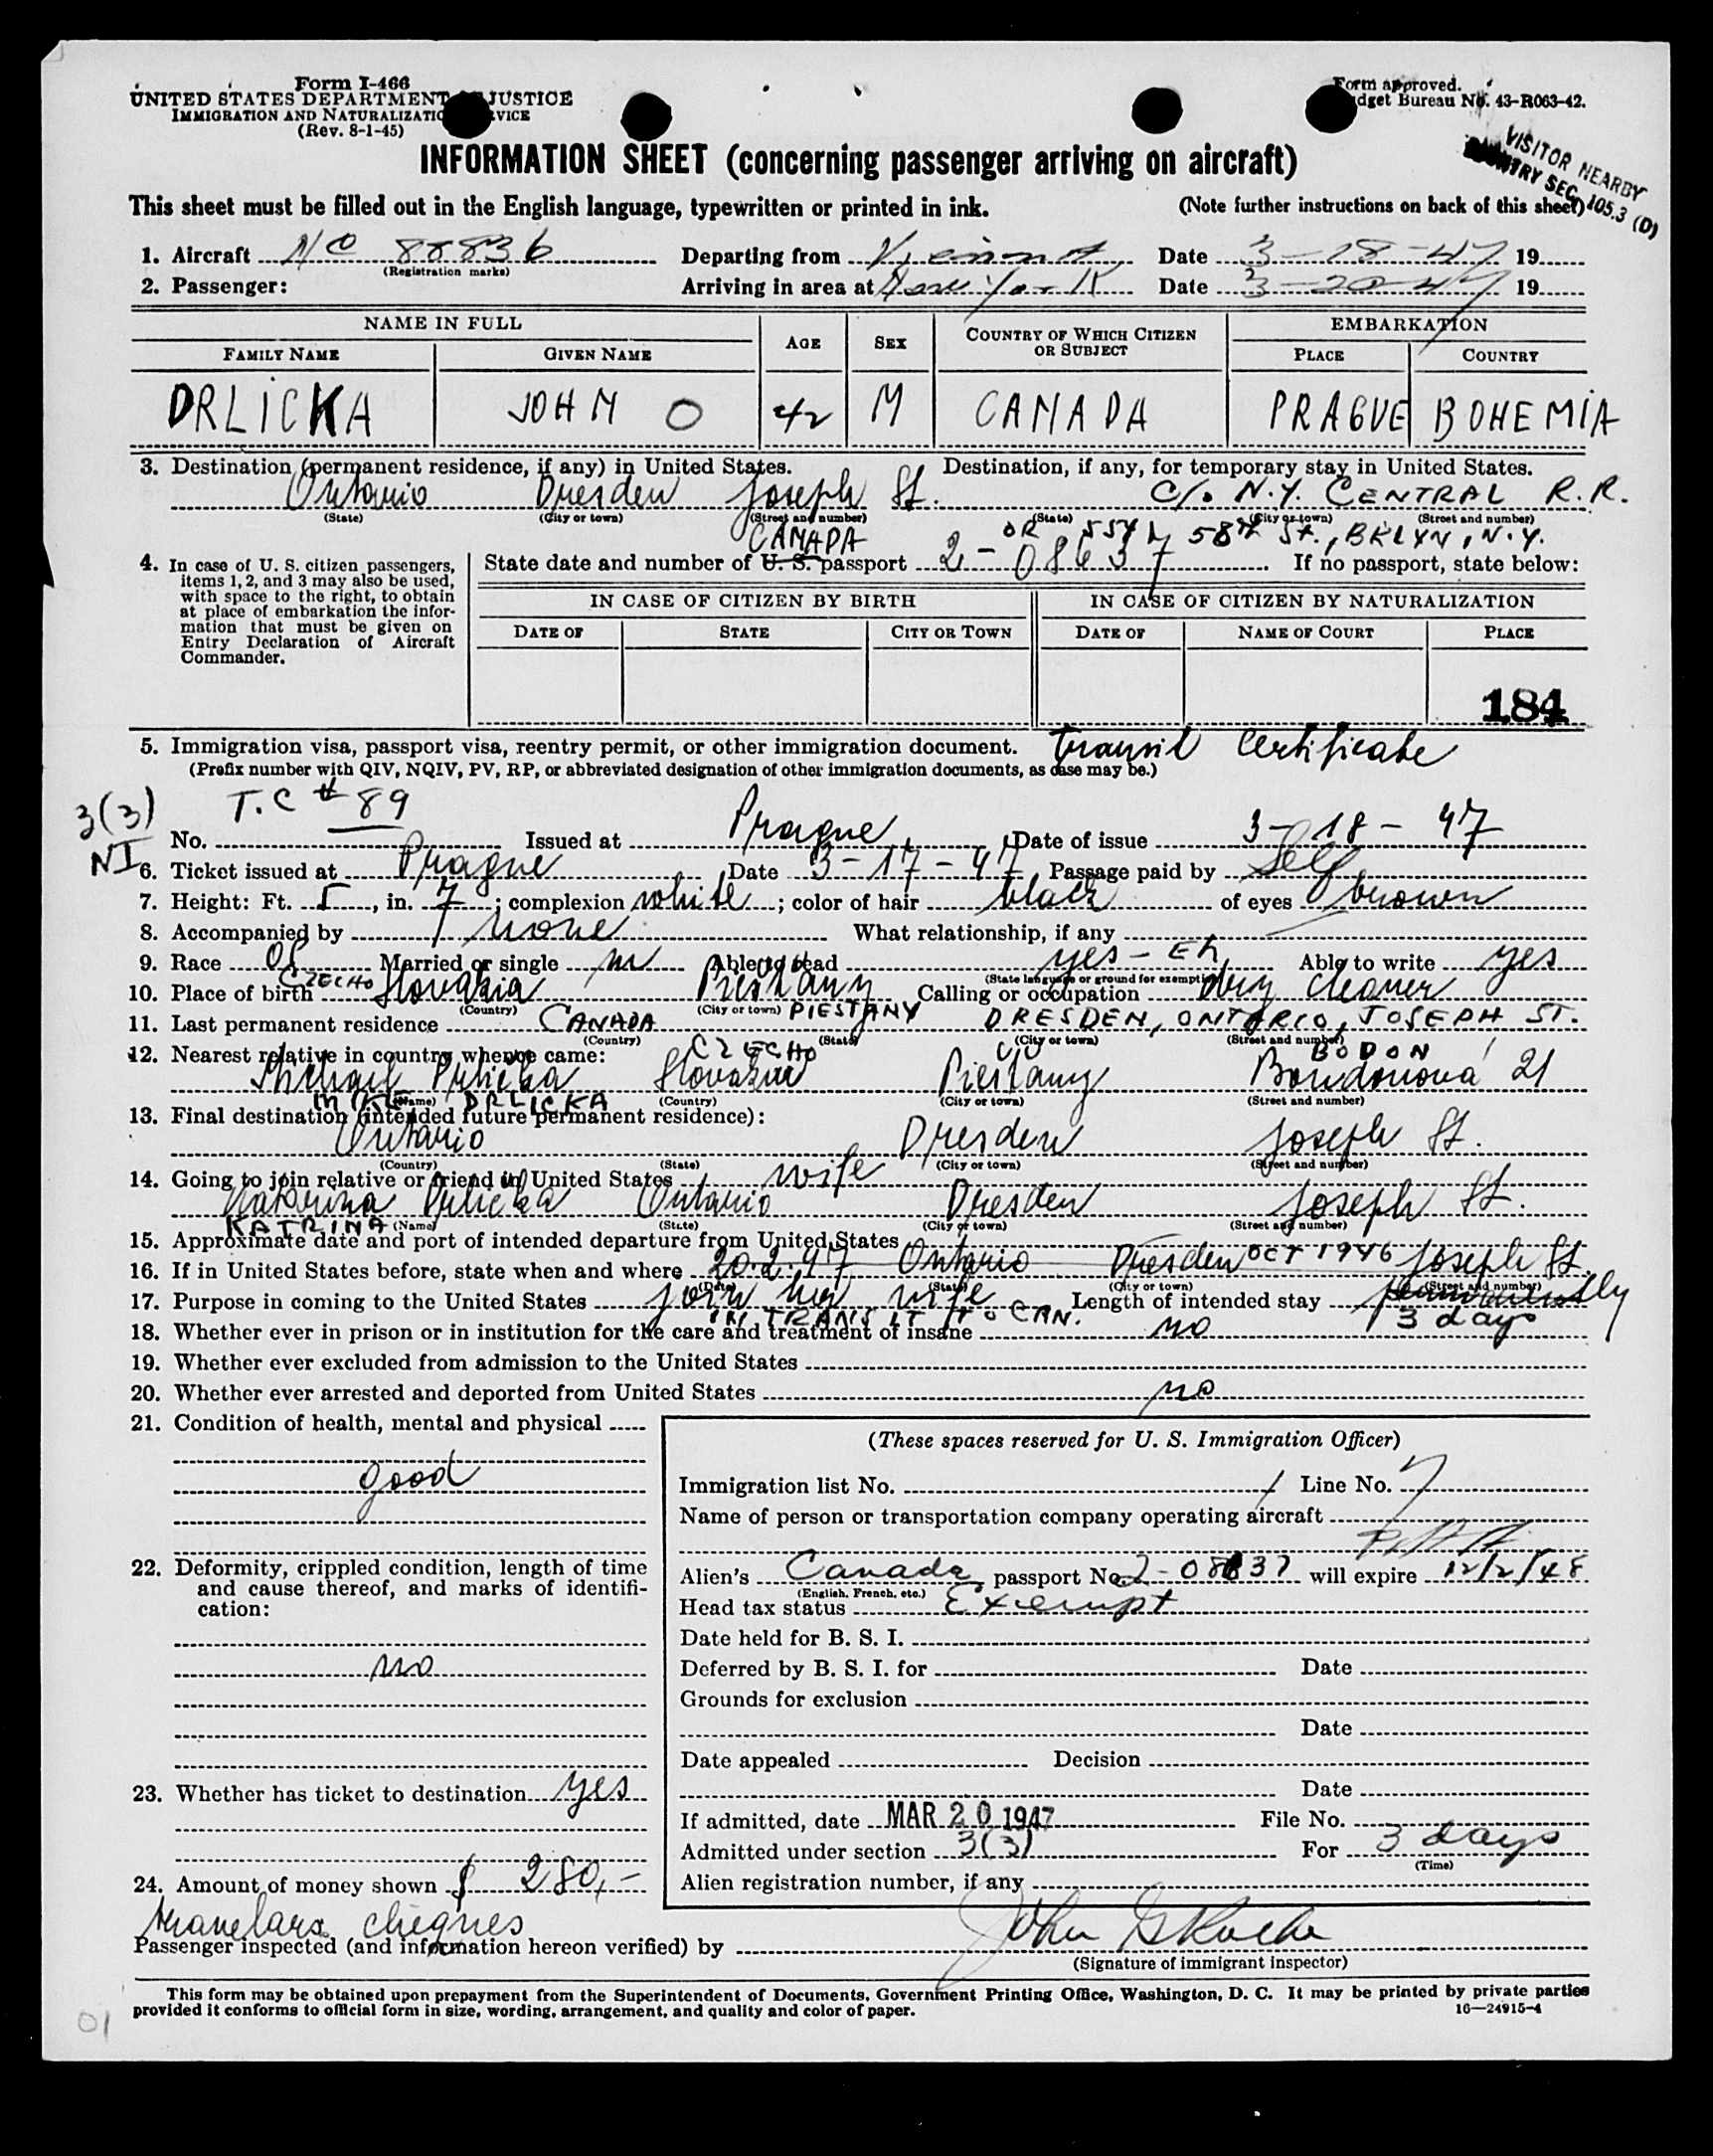 Form I-466
UNITED STATES DEPARTMENT JUSTICE
IMMIGRATION AND NATURALIZATIO VICE
(Rev. 8-1-45)
Form approved.
dget Bureau No. 43-R063-42.
VISITOR NEARBY
SEC. 105.3 (D)
INFORMATION SHEET (concerning passenger arriving on aircraft)
This sheet must be filled out in the English language, typewritten or printed in ink. (Note further instructions on back of this sheet)
1. Aircraft NC 88836 Departing from Vienna Date 3-18-47 19
(Registration marks)
2. Passenger: Arriving in area at New York Date 3-20-47 19
NAME IN FULL AGE SEX COUNTRY OF WHICH CITIZEN OR SUBJECT EMBARKATION
FAMILY NAME GIVEN NAME PLACE COUNTRY
DRLICKA JOHN O 42 M CANADA PRAGUE BOHEMIA
3. Destination (permanent residence, if any) in United States. Destination, if any, for temporary stay in United States.
Ontario Dresden Joseph St. C/o N.Y. CENTRAL R.R.
(State) (City or town) (Street and number) (State) (City or town) (Street and number)
CANADA OR 554 58th St., BKLYN, N.Y.
4. In case of U. S. citizen passengers, items 1, 2, and 3 may also be used, with space to the right, to obtain at place of embarkation the information that must be given on Entry Declaration of Aircraft Commander.
State date and number of U. S. passport 2-08637 If no passport, state below:
IN CASE OF CITIZEN BY BIRTH IN CASE OF CITIZEN BY NATURALIZATION
DATE OF STATE CITY OR TOWN DATE OF NAME OF COURT PLACE
184
5. Immigration visa, passport visa, reentry permit, or other immigration document. Transit Certificate
(Prefix number with QIV, NQIV, PV, RP, or abbreviated designation of other immigration documents, as case may be.)
3(3)
NI
T.C # 89
No. Issued at Prague Date of issue 3-18-47
6. Ticket issued at Prague Date 3-17-47 Passage paid by Self
7. Height: Ft. 5, in. 7; complexion white; color of hair black of eyes brown
8. Accompanied by none What relationship, if any
9. Race Married or single m Able to read yes - Eh Able to write yes
(State language or ground for exemption)
10. Place of birth CZECHO Slovakia Piestany Calling or occupation dry cleaner
(Country) (City or town) PIESTANY
11. Last permanent residence CANADA DRESDEN, ONTARIO, JOSEPH ST.
(Country) (State) (City or town) (Street and number)
12. Nearest relative in country whence came: CZECHO BODON
Michael Drlicka Slovakia Piestany 21
(Name) (Country) (City or town) (Street and number)
MIKE DRLICKA
13. Final destination (intended future permanent residence):
Ontario Dresden Joseph St.
(Country) (State) (City or town) (Street and number)
14. Going to join relative or friend in United States wife
Katarina Drlicka Ontario Dresden Joseph St.
KATRINA (Name) (State) (City or town) (Street and number)
15. Approximate date and port of intended departure from United States
16. If in United States before, state when and where 20.2.47 Ontario Dresden OCT 1946 Joseph St.
(Date) (State) (City or town) (Street and number)
17. Purpose in coming to the United States join her wife Length of intended stay permanently
IN TRANSIT TO CAN. 3 days
18. Whether ever in prison or in institution for the care and treatment of insane no
19. Whether ever excluded from admission to the United States
20. Whether ever arrested and deported from United States no
21. Condition of health, mental and physical
good
22. Deformity, crippled condition, length of time and cause thereof, and marks of identification:
no
23. Whether has ticket to destination yes
24. Amount of money shown $ 280,-
travelars cheques
(These spaces reserved for U. S. Immigration Officer)
Immigration list No. 1 Line No. 7
Name of person or transportation company operating aircraft
Alien's Canada passport No. 2-08637 will expire 12/2/48
(English, French, etc.)
Head tax status Exempt
Date held for B. S. I.
Deferred by B. S. I. for Date
Grounds for exclusion
Date
Date appealed Decision
Date
If admitted, date MAR 20 1947 File No.
Admitted under section 3(3) For 3 days
(Time)
Alien registration number, if any
Passenger inspected (and information hereon verified) by John
(Signature of immigrant inspector)
This form may be obtained upon prepayment from the Superintendent of Documents, Government Printing Office, Washington, D. C. It may be printed by private parties
provided it conforms to official form in size, wording, arrangement, and quality and color of paper. 16—24915-4
01